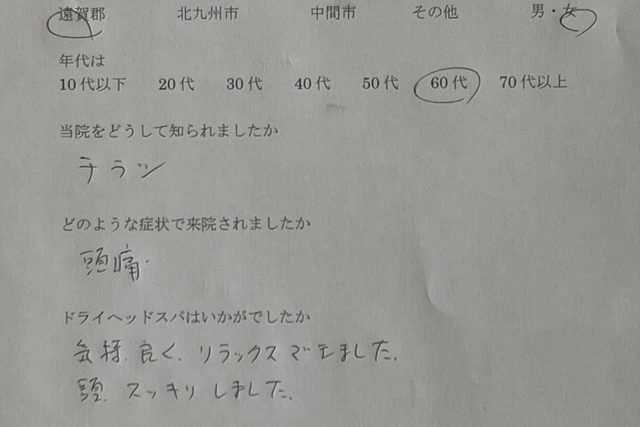 遠賀郡 北九州市 中間市 その他 男・女
年代は
10代以下 20代 30代 40代 50代 60代 70代以上
当院をどうして知られましたか
チラシ
どのような症状で来院されましたか
頭痛.
ドライヘッドスパはいかがでしたか
気持.良く.リラックスできました.
頭.スッキリしました.